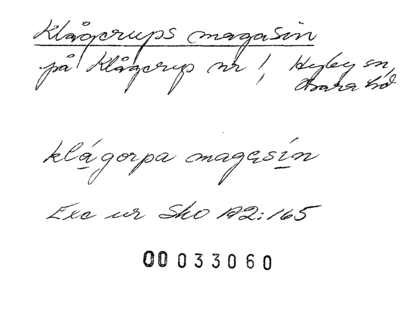 Klågerups magasin
på Klågerup nr 1, Hyby sn,
Bara hd
klågorpa magasin
Exc ur Sko A2:165
00033060